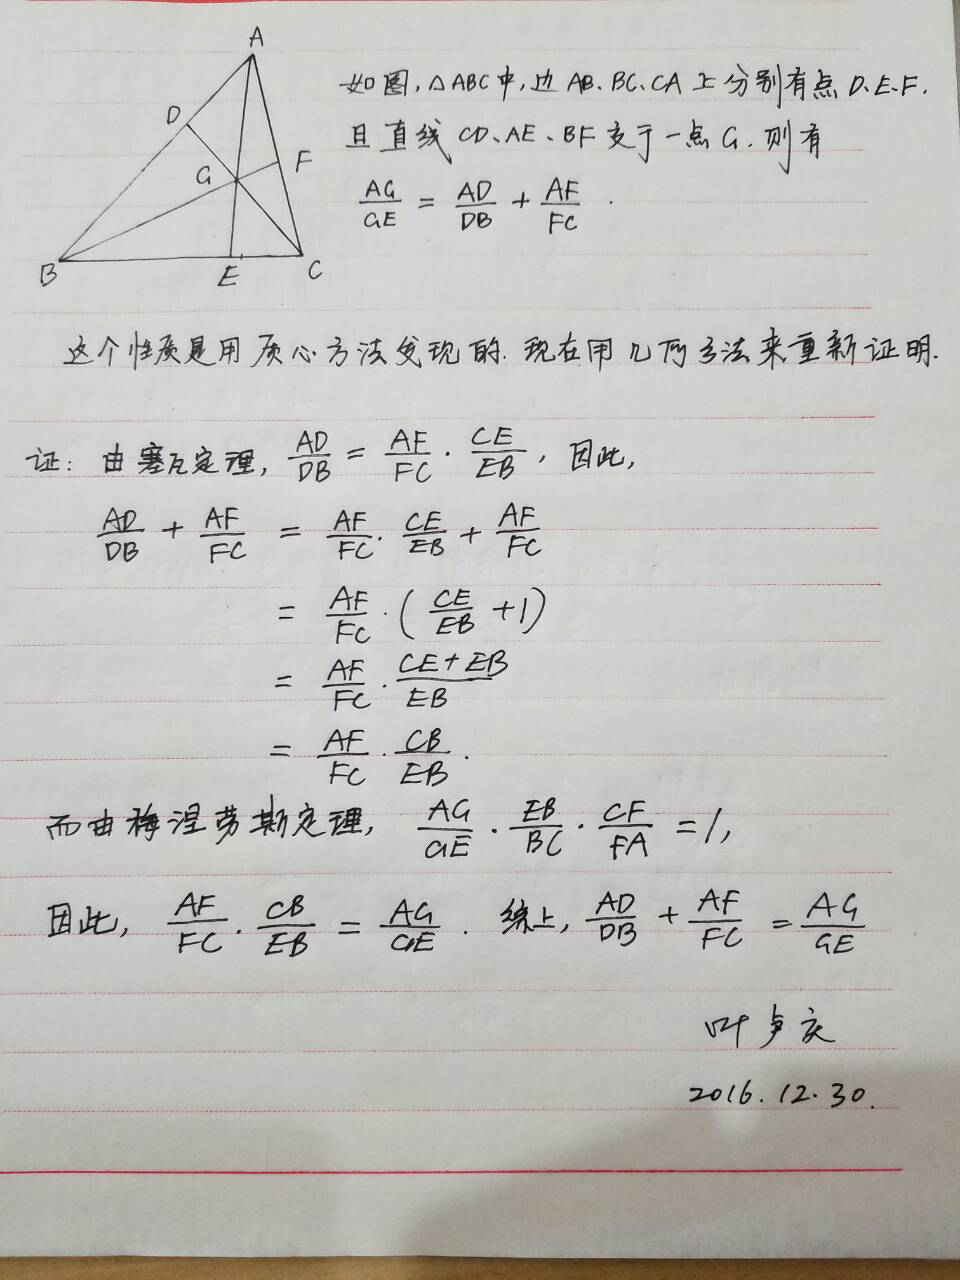 A
D
F
G
B
E
C
如图,△ABC中,边AB、BC、CA上分别有点D、E、F.
且直线CD、AE、BF交于一点G.则有
AG/GE = AD/DB + AF/FC.
这个性质是用质心方法发现的.现在用几何方法来重新证明.
证:由塞瓦定理, AD/DB = AF/FC · CE/EB, 因此,
AD/DB + AF/FC = AF/FC · CE/EB + AF/FC
= AF/FC · (CE/EB + 1)
= AF/FC · (CE+EB)/EB
= AF/FC · CB/EB.
而由梅涅劳斯定理, AG/GE · EB/BC · CF/FA = 1,
因此, AF/FC · CB/EB = AG/GE. 综上, AD/DB + AF/FC = AG/GE
叶卢庆
2016.12.30.